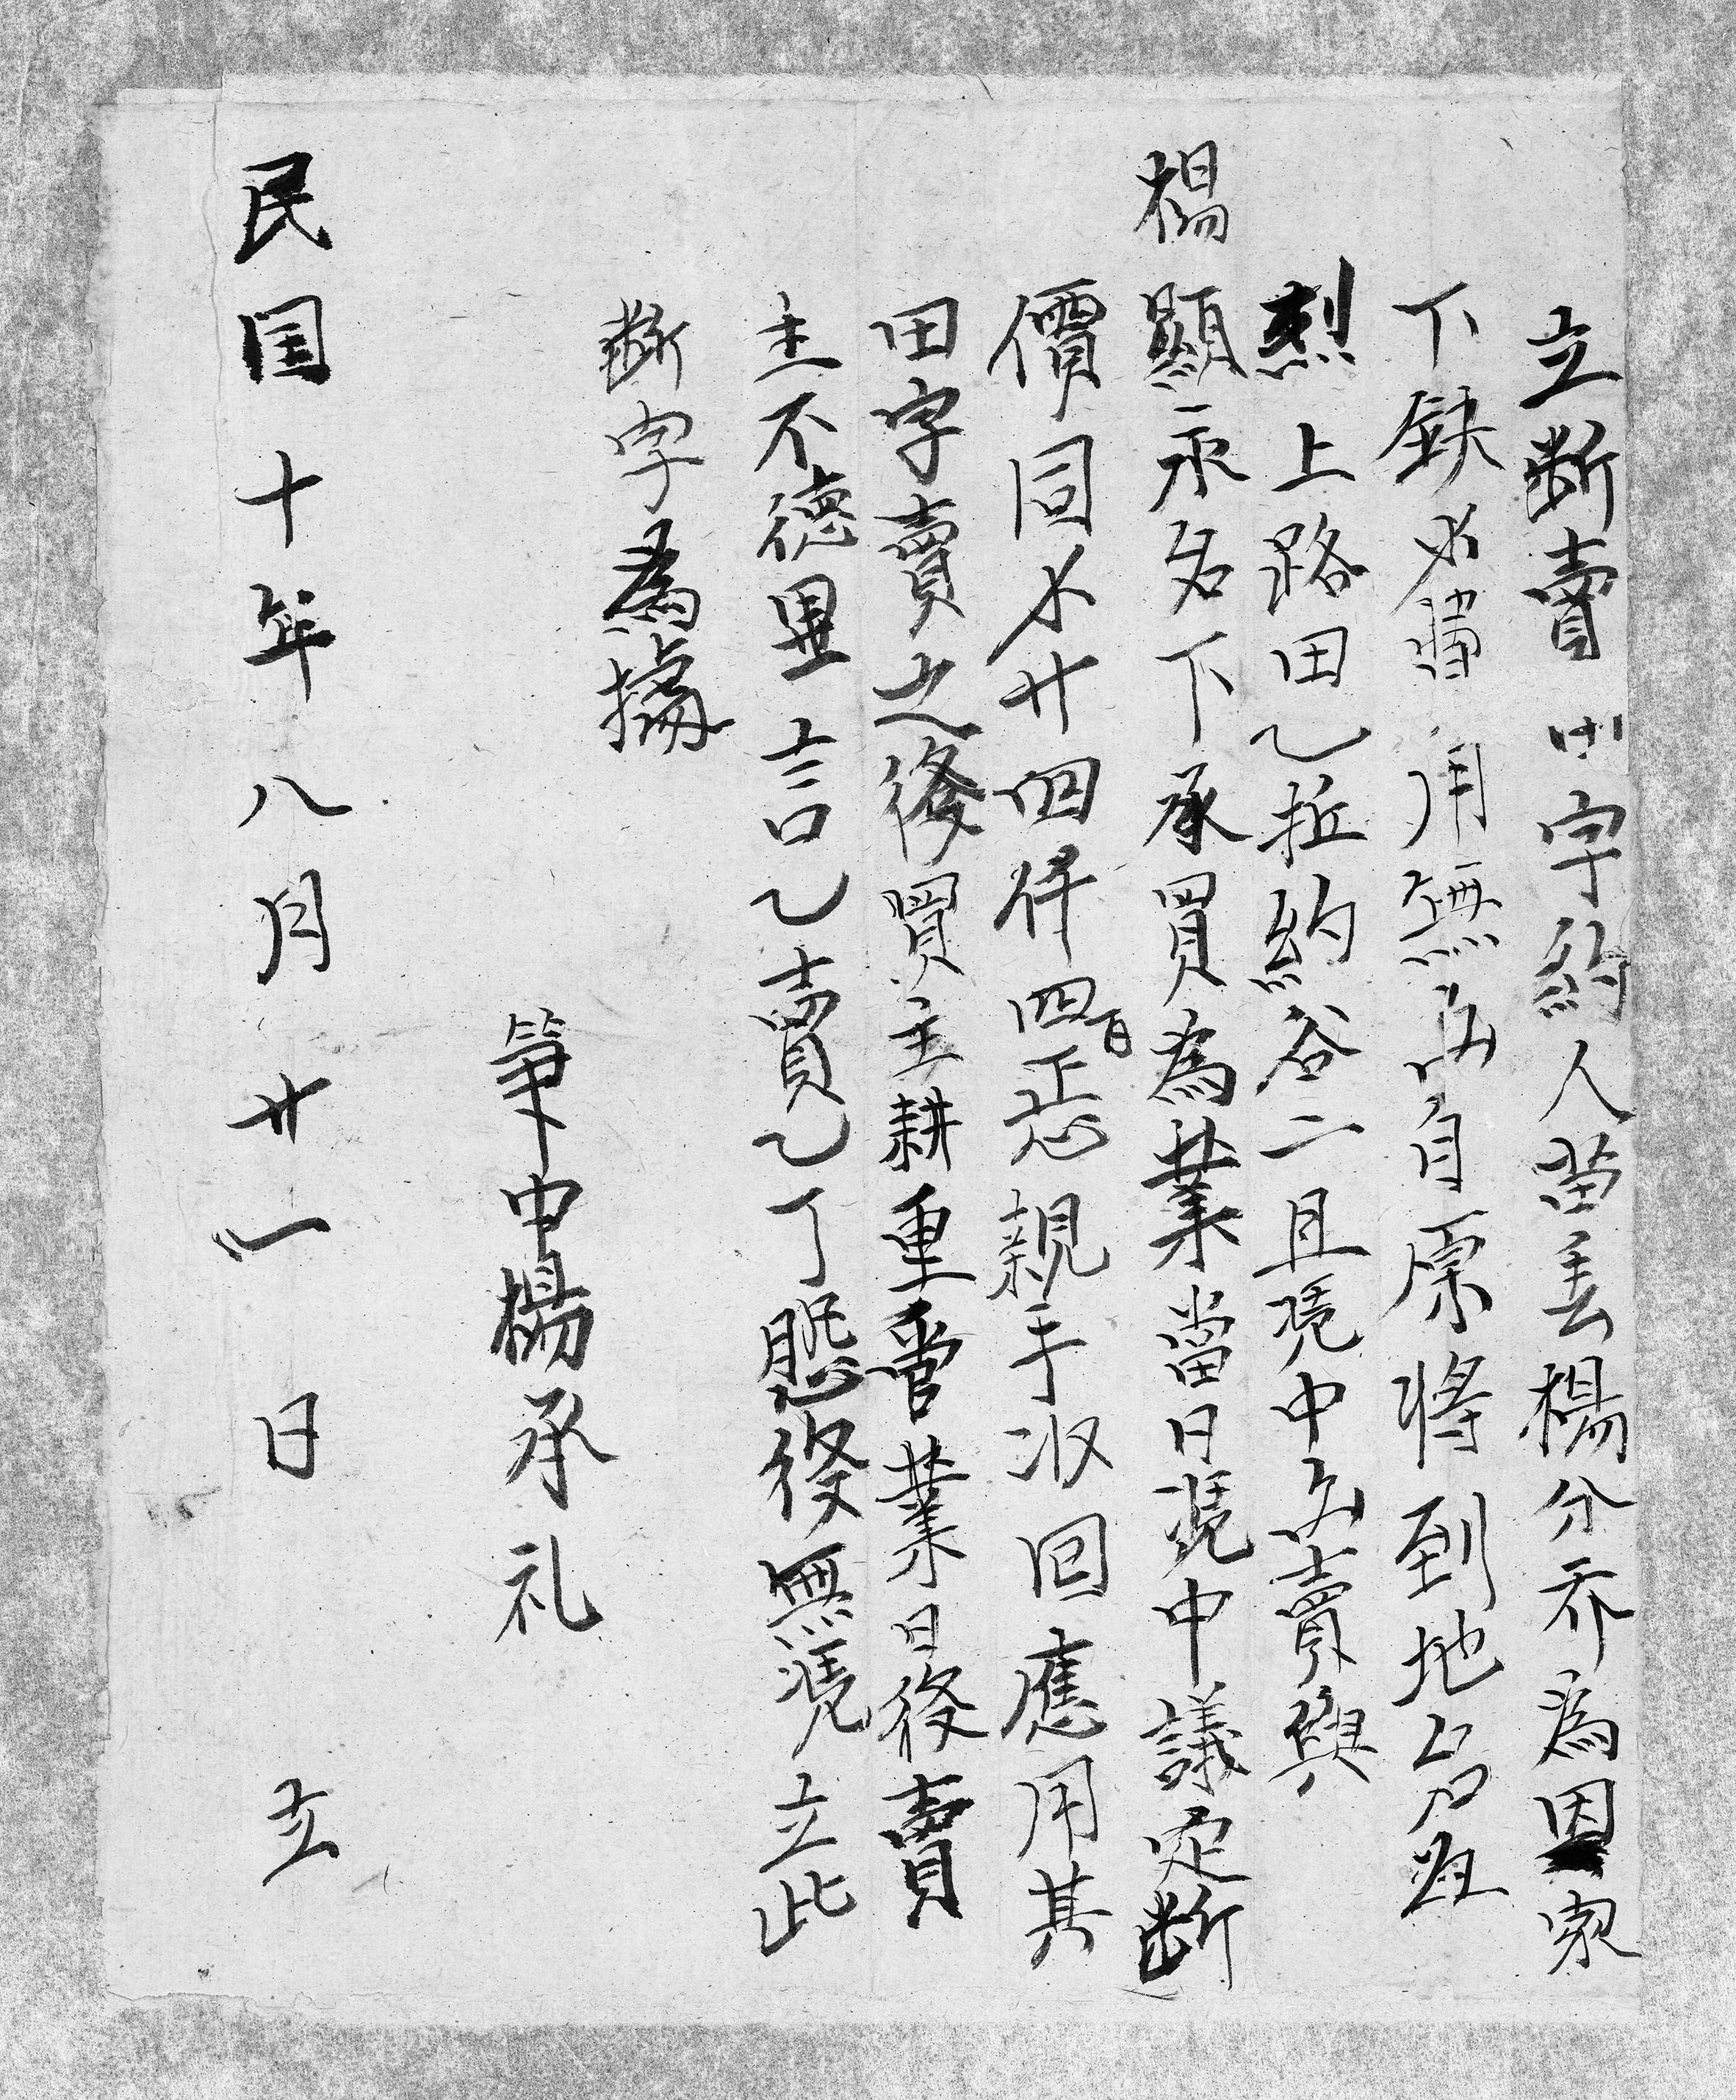 立断賣田字約人苗丢楊分乔為因家
下缺少錢用無出自原将到地名
烈上路田乙坵約谷二且凴中出賣與
楊顯永名下承買為業當日凴中議定断
價同錢廿四仟四百正恁親手収回應用其
田字賣之後買主耕重管業日後賣
主不徳異言乙賣乙了恐後無凴立此
断字為據
筆中楊承礼
民国十年八月廿一日立